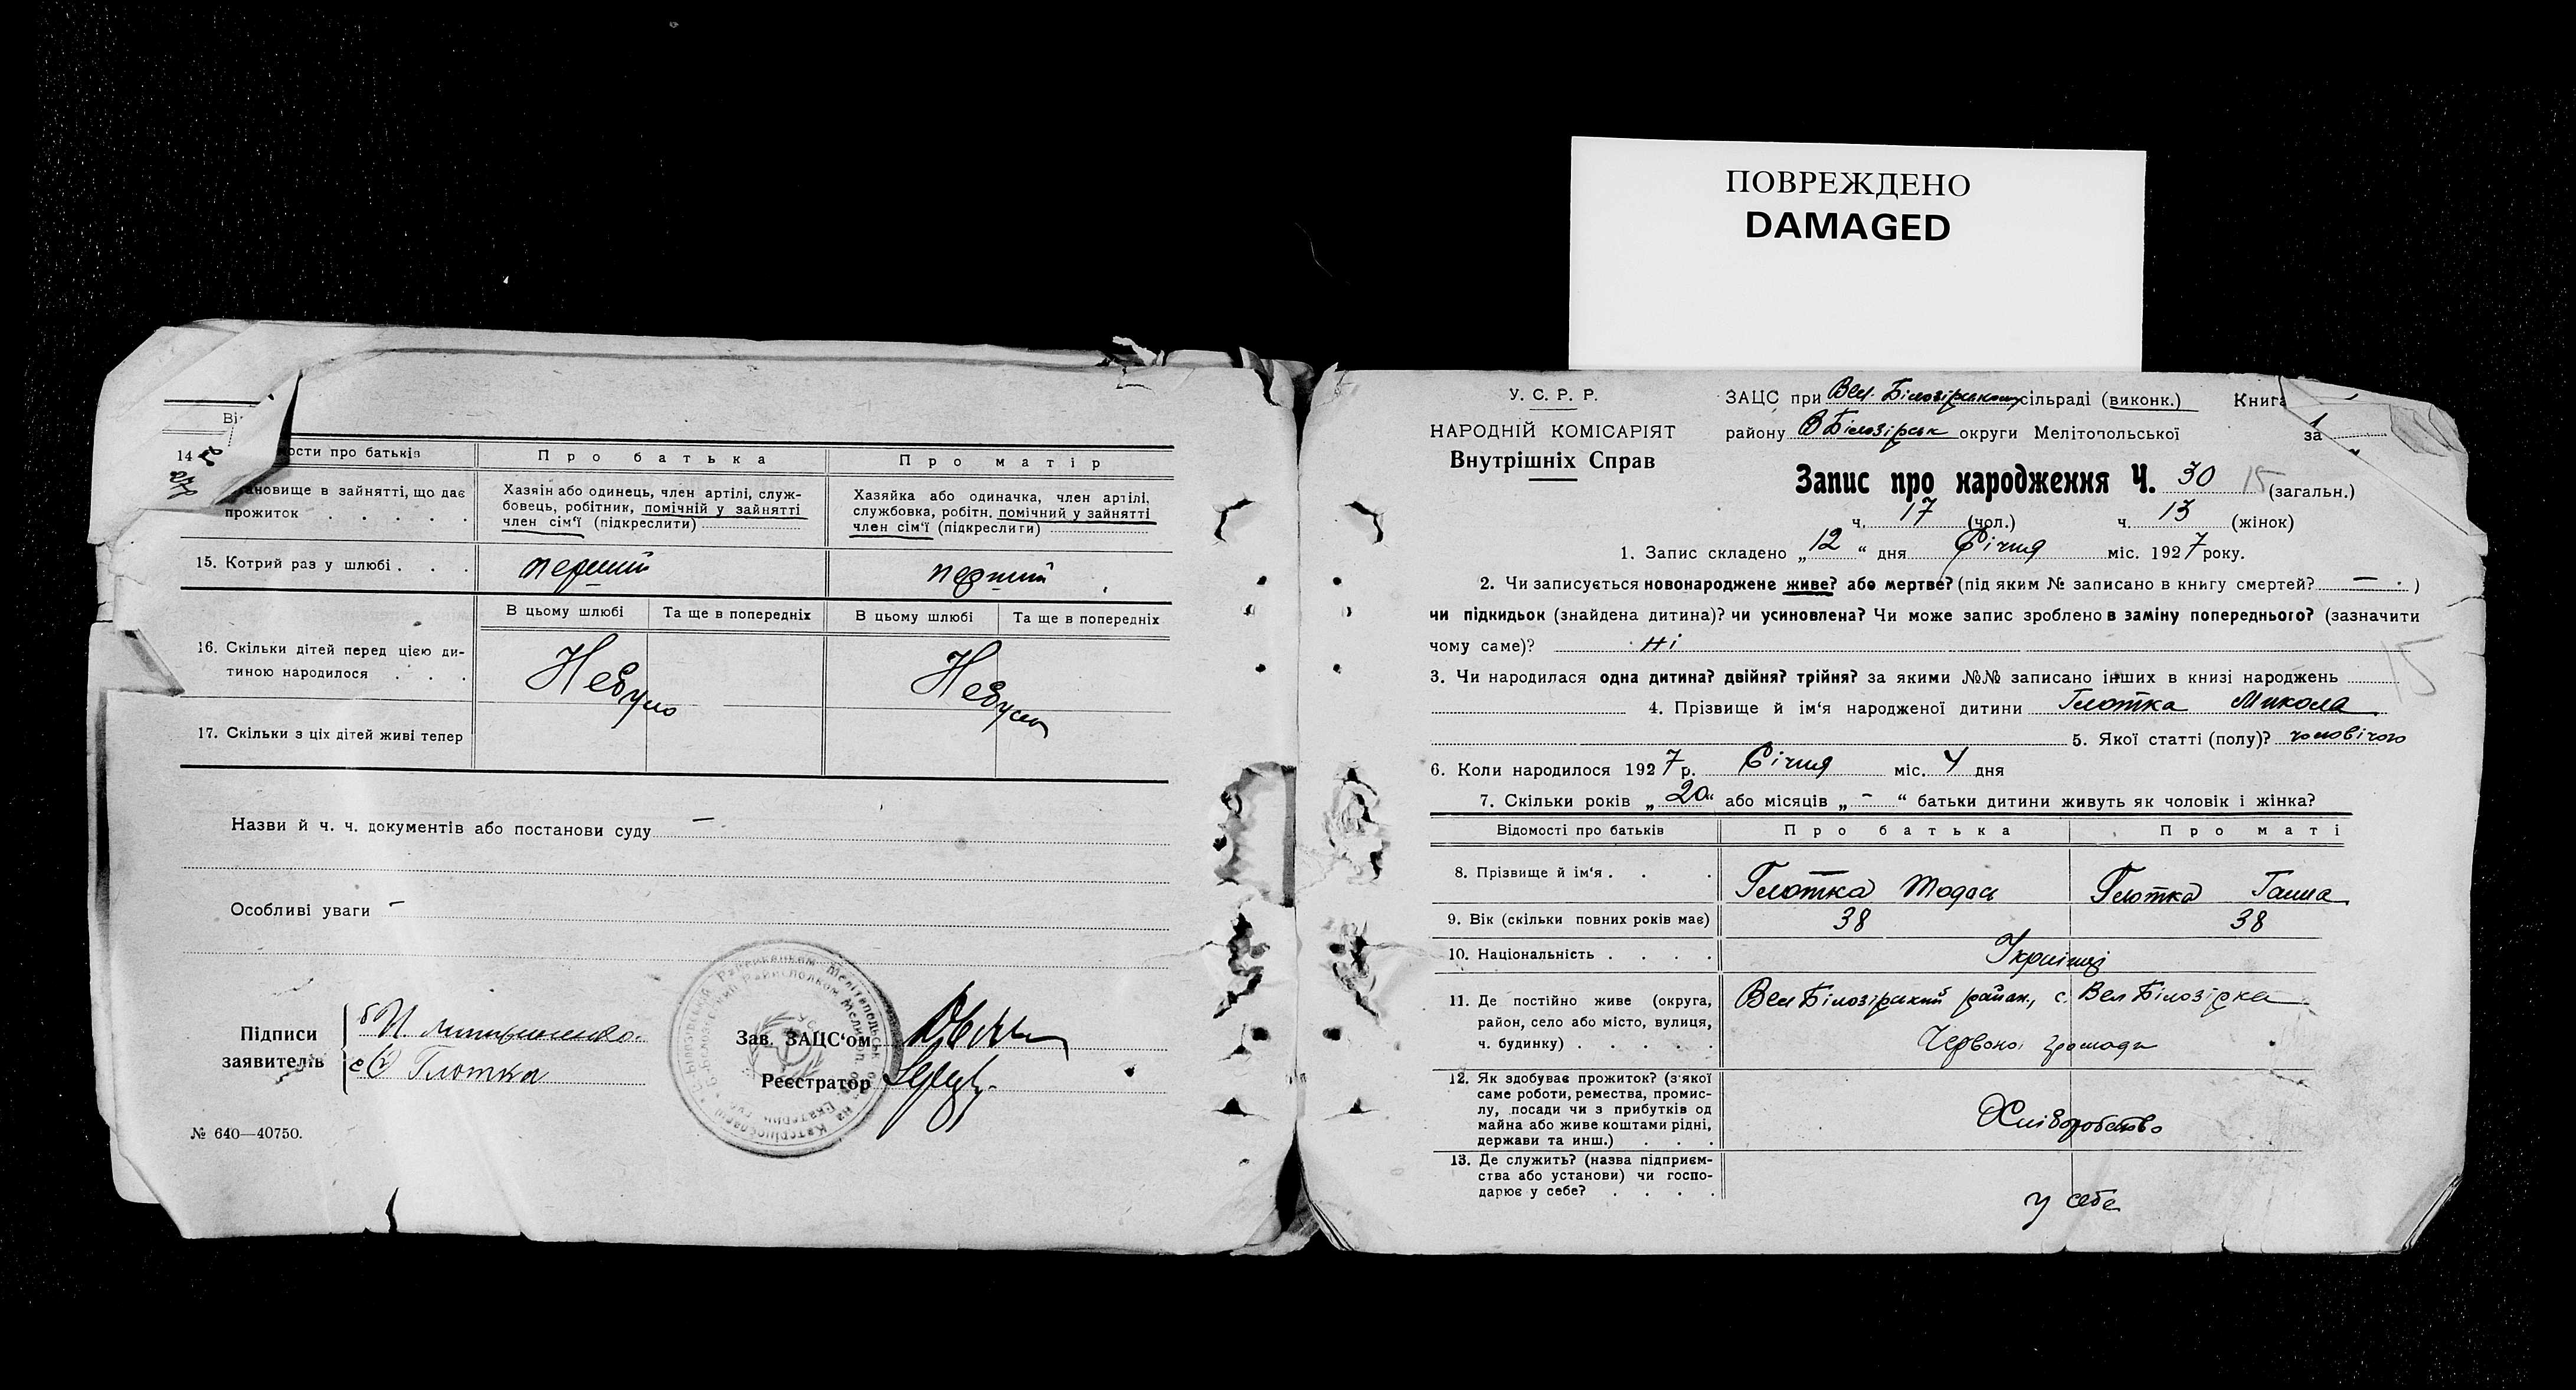 ПОВРЕЖДЕНО
DAMAGED
14
ости про батьків
Про батька
Про матір
ановище в зайнятті, що дає
прожиток . . . . .
Хазяін або одинець, член артілі, служ-
бовець, робітник, помічній у зайнятті
член сім'ї (підкреслити)
Хазяйка або одиначка, член артілі,
службовка, робітн. помічний у зайнятті
член сім'ї (підкреслити)
15. Котрий раз у шлюбі . . .
перший
перший
В цьому шлюбі
Та ще в попередніх
В цьому шлюбі
Та ще в попередніх
16. Скільки дітей перед цією ди-
тиною народилося . . .
Небуло
Небуло
17. Скільки з ціх дітей живі тепер
Назви й ч. ч. документів або постанови суду —
Особливі уваги —
Підписи
заявителів
Глотка
Зав. ЗАЦС'ом
Реєстратор
№ 640—40750.
У. С. Р. Р.
НАРОДНІЙ КОМІСАРІЯТ
Внутрішніх Справ
ЗАЦС при Вел. Білозірському сільраді (виконк.) Книга
району В Білозірськ округи Мелітопольської за
Запис про народження Ч. 30 15 (загальн.)
ч. 17 (чол.) ч. 13 (жінок)
1. Запис складено „12“ дня Січня міс. 1927 року.
2. Чи записується новонароджене живе? або мертве? (під яким № записано в книгу смертей? — )
чи підкидьок (знайдена дитина)? чи усиновлена? Чи може запис зроблено в заміну попереднього? (зазначити
чому саме)? Ні
15
3. Чи народилася одна дитина? двійня? трійня? за якими №№ записано інших в книзі народжень
4. Прізвище й ім'я народженої дитини Глотка Микола
5. Якої статті (полу)? чоловічого
6. Коли народилося 1927 р. Січня міс. 4 дня
7. Скільки років „20“ або місяців „-“ батьки дитини живуть як чоловік і жінка?
Відомості про батьків
Про батька
Про маті
8. Прізвище й ім'я . . .
Глотка Тодось
Глотка Ганна
9. Вік (скільки повних років має)
38
38
10. Національність . . . .
Українці
11. Де постійно живе (округа,
район, село або місто, вулиця,
ч. будинку) . . . . .
Вел Білозірський район, с. Вел Білозірка
Червоної громади
12. Як здобуває прожиток? (з якої
саме роботи, ремества, промис-
лу, посади чи з прибутків од
майна або живе коштами рідні,
держави та инш.) . . .
Хліборобство
13. Де служить? (назва підприєм-
ства або установи) чи госпо-
дарює у себе? . . . .
у себе